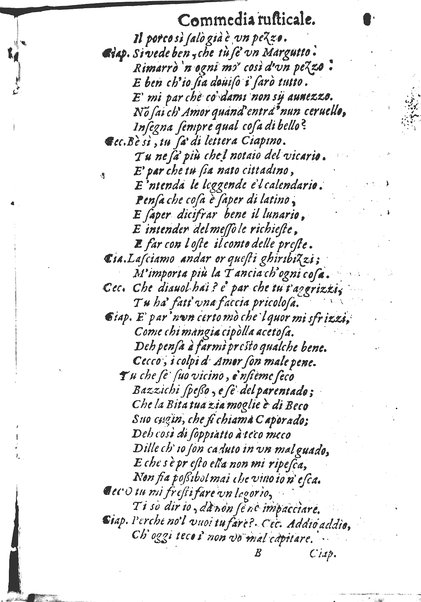 Commedia rusticale.
Il porco si salò già è vn pezzo.
Ciap. Si vede ben, che tù se' vn Margutto:
Rimarrò 'n ogni mo' così d'vn pezzo!
E ben ch'io sia douiso i sarò tutto.
E' mi par che co' dami non sij auuezzo.
Nō sai ch'Amor quand'entra 'nun ceruello,
Insegna sempre qual cosa di bello?
Cec. Bè sì, tu sa' di lettera Ciapino.
Tu ne sa' più che'l notaio del vicario.
E' par che tu sia nato cittadino,
E 'ntenda le leggende e'l calendario.
Pensa che cosa è saper di latino,
E saper dicifrar bene il lunario,
E intender del messo le richieste,
E far con l'oste il conto delle preste.
Cia. Lasciamo andar or questi ghiribizzi;
M'importa più la Tancia ch'ogni cosa.
Cec. Che diauol hai? e' par che tu t'aggrizzi,
Tu ha' fatt'vna faccia pricolosa.
Ciap. E' par 'nvn certo mò che'l quor mi sfrizzi,
Come chi mangia cipolla acetosa.
Deh pensa à farmi presto qualche bene.
Cecco, i colpi d'Amor son male pene.
Tu che se' suo vicino, e 'nsieme seco
Bazzichi spesso, e se' del parentado;
Che la Bita tua zia moglie è di Beco
Suo cugin, che si chiamà Caporado;
Deh così di soppiatto à teco meco
Dille ch'io son caduto in vn mal guado,
E che s'è presto ella non mi ripesca,
Non fia possibol mai che viuo i n'esca.
Cec. O tu mi fresti fare vn legorio,
Ti so dir io, da non se ne 'mpacciare.
Ciap. Perche no'l vuoi tu fare? Cec. Addio addio,
Ch'oggi teco i' non vo' mal capitare.
B Ciap.